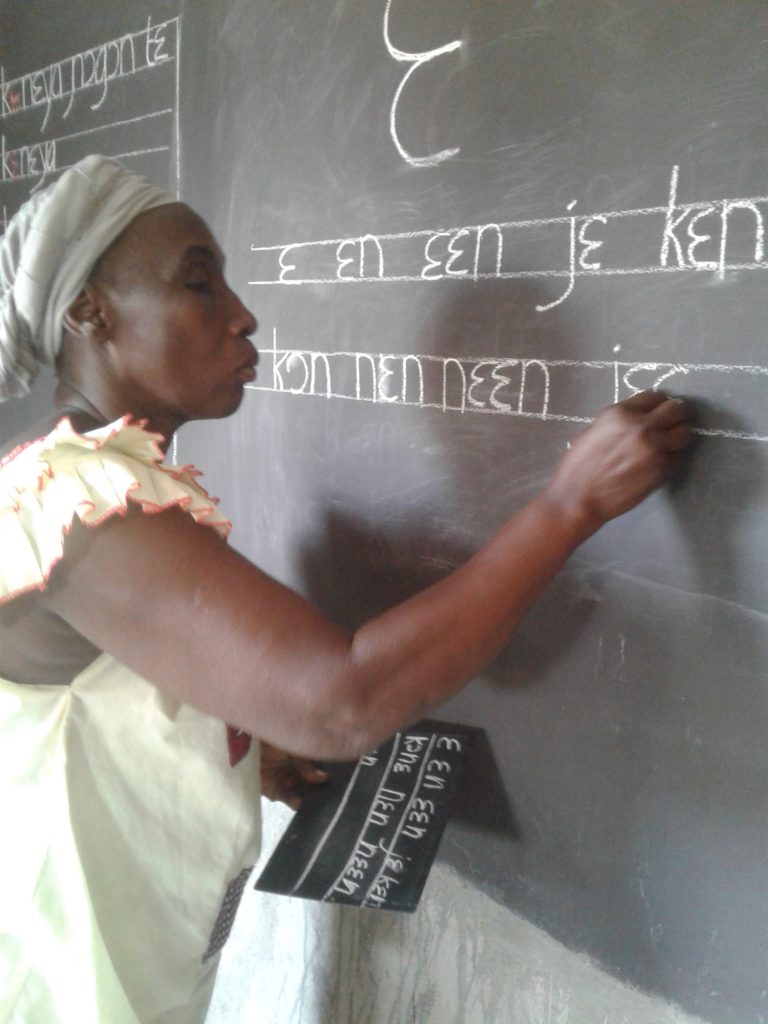 kɛnɛya ɲɔgɔn tɛ
kɛnɛya
ɛ
ɛ ɛn ɛɛn jɛ kɛn
kɔn nɛn nɛɛn jɛ
ɛ ɛn ɛɛn jɛ kɛn
kɔnɛ nɛn nɛɛn